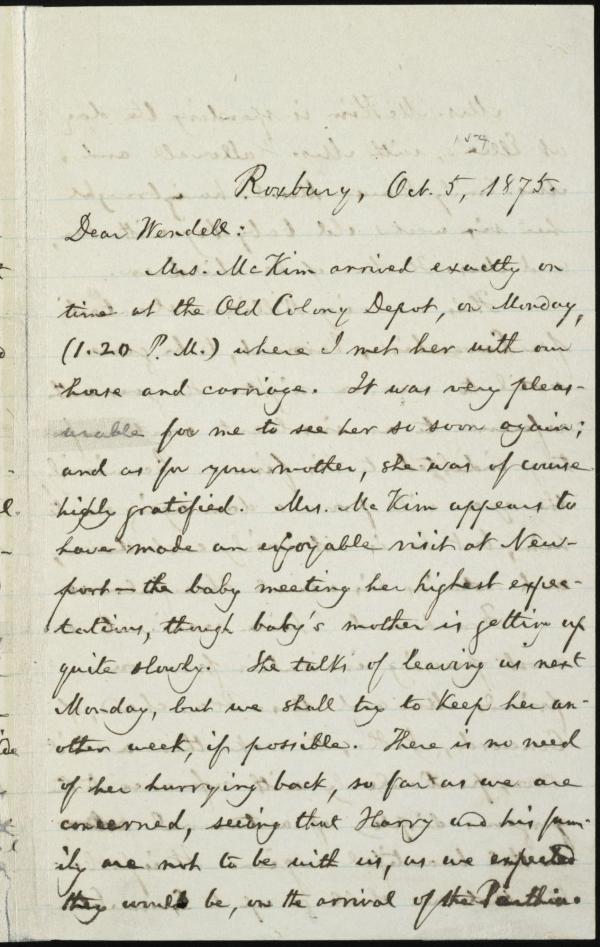 Roxbury, Oct. 5, 1875.
Dear Wendell:
Mrs. McKim arrived exactly on
time at the Old Colony Depot, on Monday,
(1.20 P. M.) where I met her with our
horse and carriage. It was very pleas-
urable for me to see her so soon again;
and as for your mother, she was of course
highly gratified. Mrs. McKim appears to
have made an enjoyable visit at New-
port — the baby meeting her highest expec-
tations, though baby's mother is getting up
quite slowly. She talks of leaving us next
Monday, but we shall try to keep her an-
other week, if possible. There is no need
of her hurrying back, so far as we are
concerned, seeing that Harry and his fam-
ily are not to be with us, as we expected
they would be, on the arrival of the Parthia.